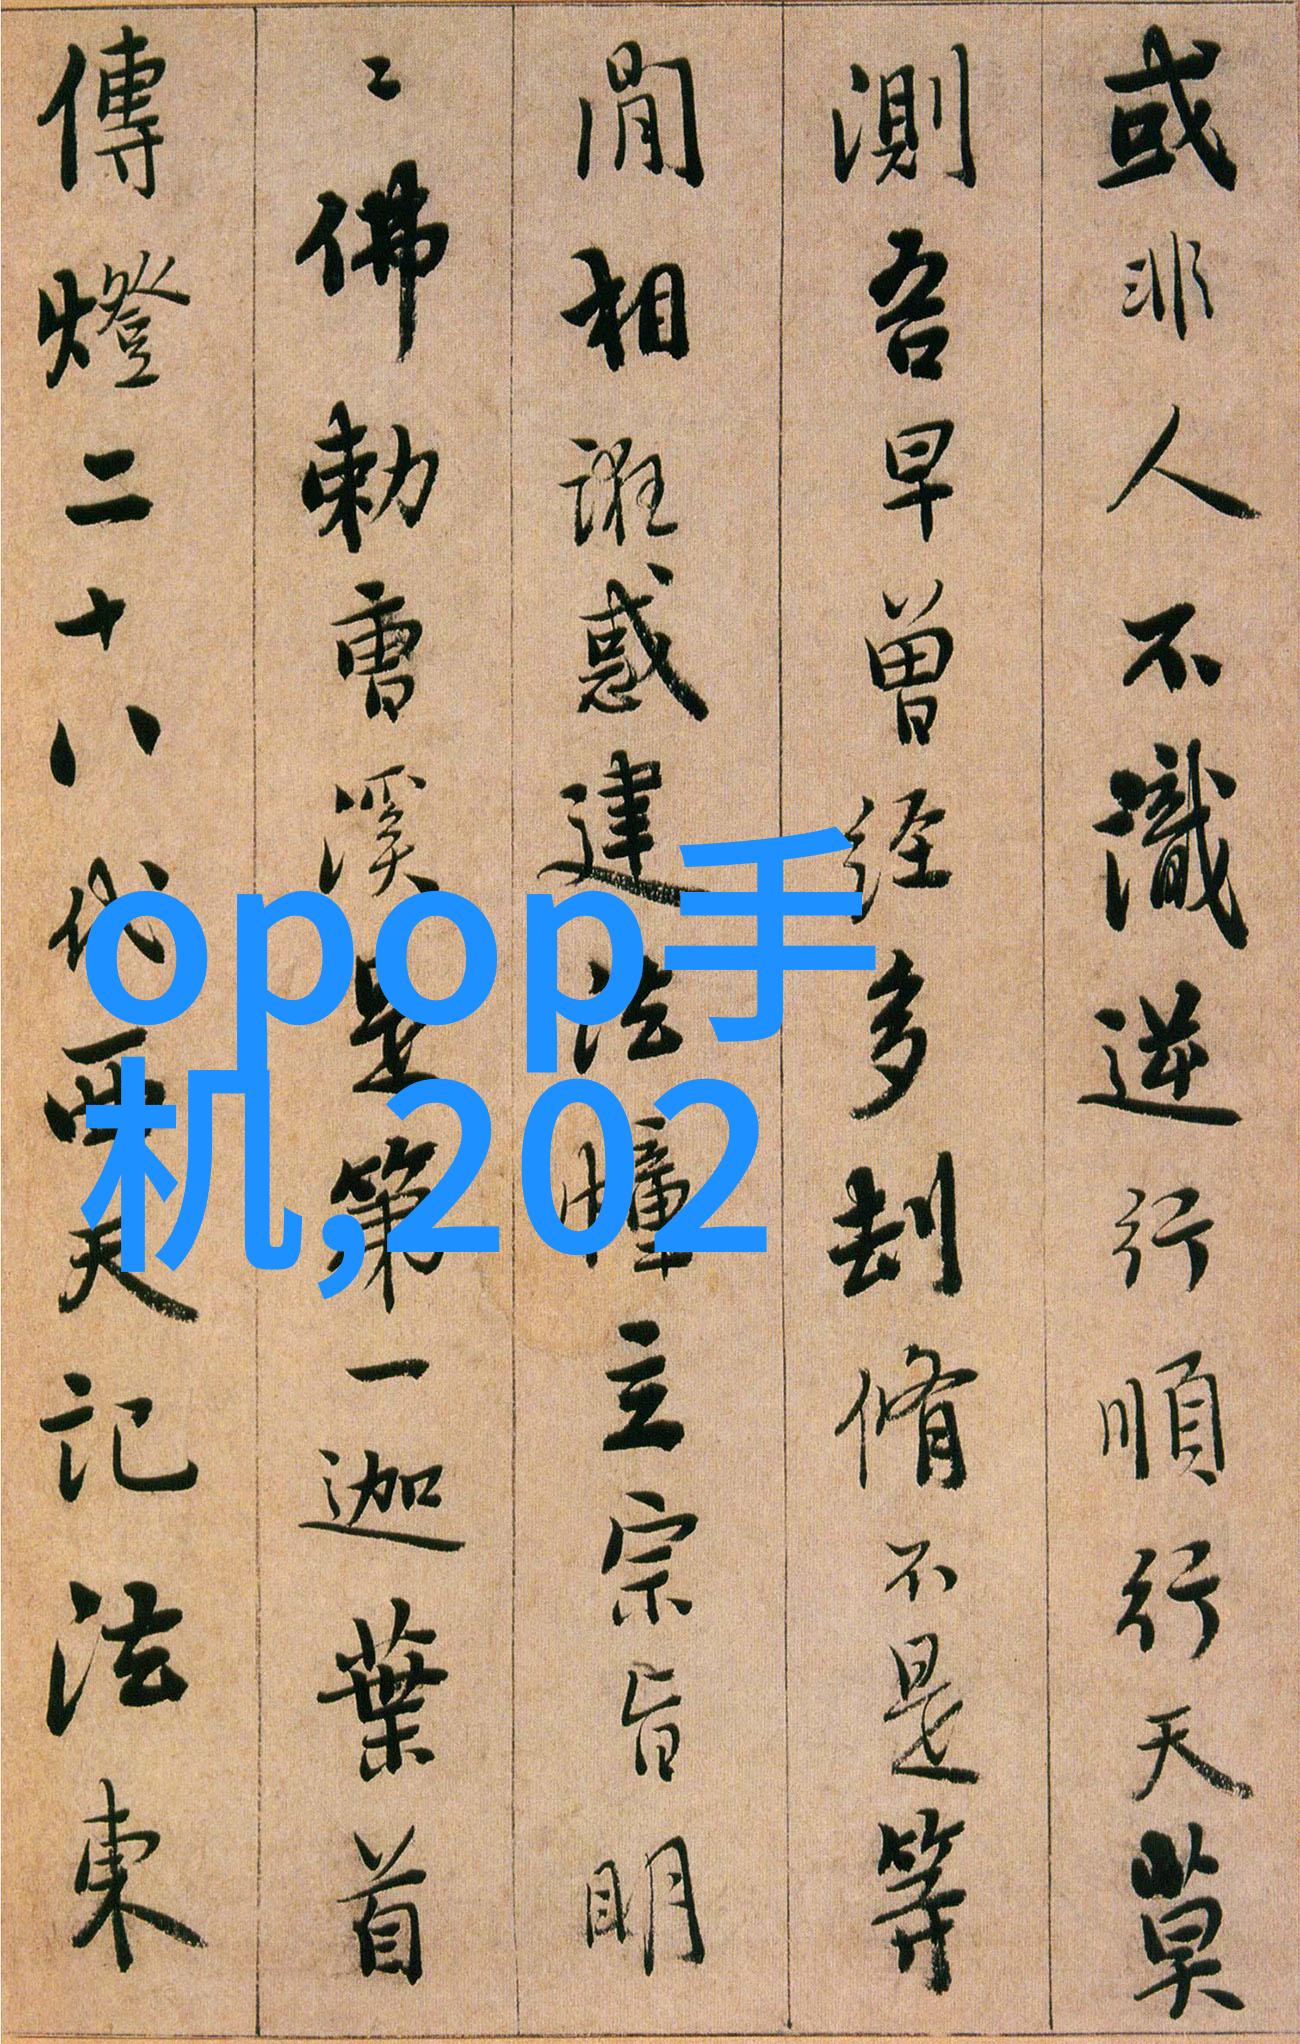 或非人不識逆行順行天莫
測吾早曾經多劫修不是等
閒相誑惑建法幢立宗旨明
〻佛勅曹溪是第一迦葉首
傳燈二十八代西天記法東
opop手
机,202